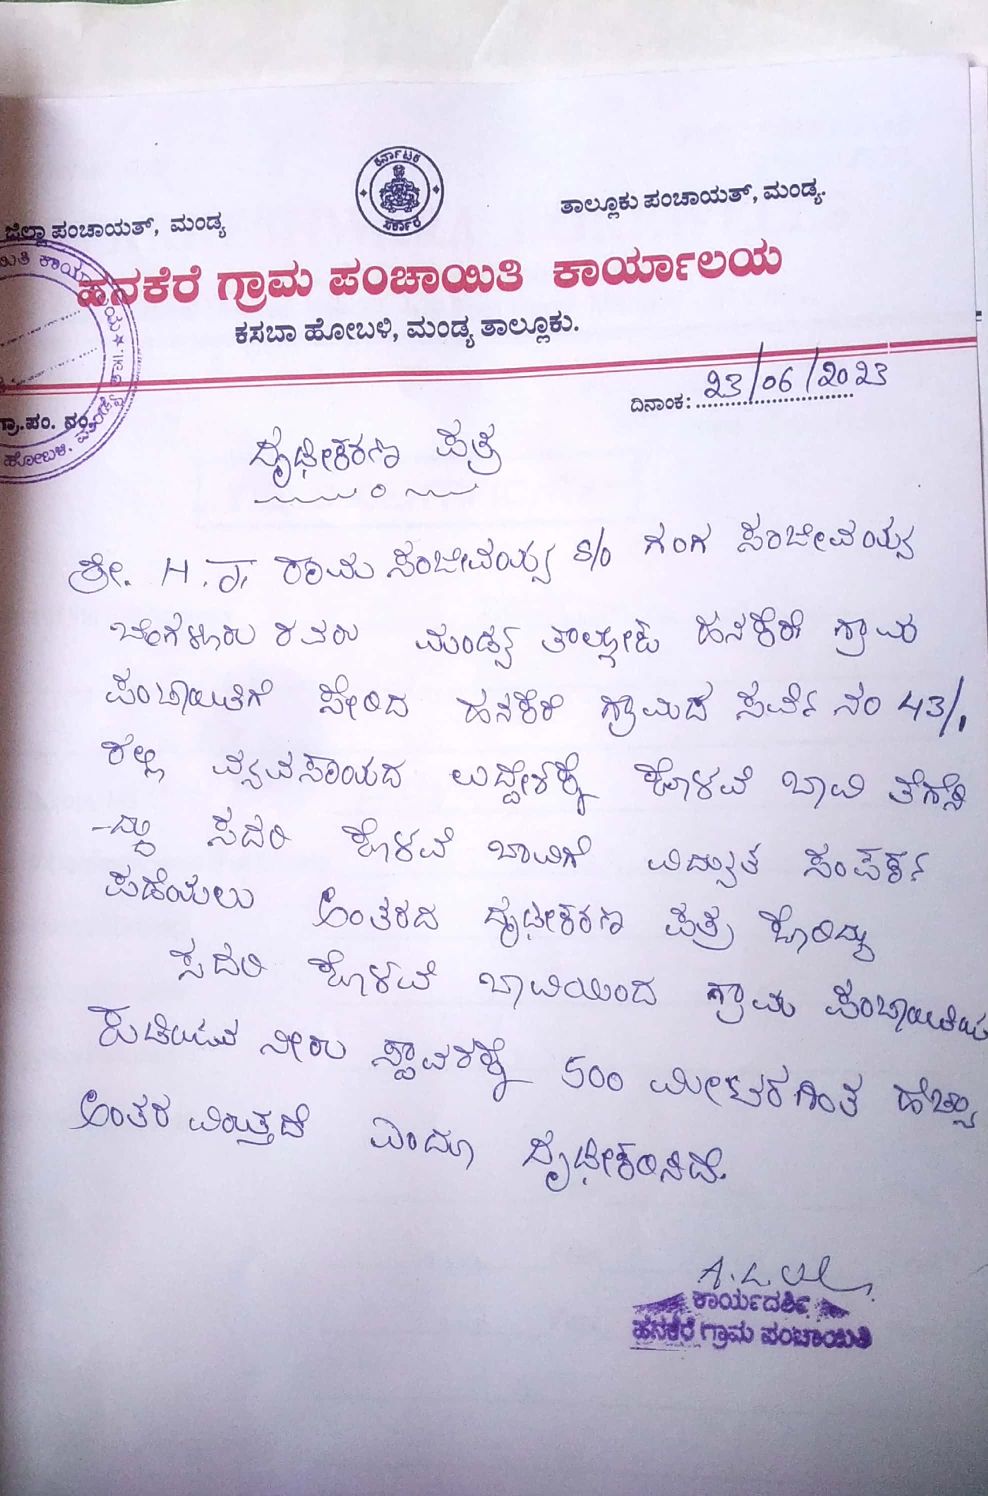 ಕರ್ನಾಟಕ
ಸರ್ಕಾರ
ಜಿಲ್ಲಾ ಪಂಚಾಯತ್, ಮಂಡ್ಯ
ತಾಲ್ಲೂಕು ಪಂಚಾಯತ್, ಮಂಡ್ಯ.
ಹನಕೆರೆ ಗ್ರಾಮ ಪಂಚಾಯಿತಿ ಕಾರ್ಯಾಲಯ
ಕಸಬಾ ಹೋಬಳಿ, ಮಂಡ್ಯ ತಾಲ್ಲೂಕು.
ಗ್ರಾ.ಪಂ. ನಂ.
ದಿನಾಂಕ: 23/06/2023
ದೃಢೀಕರಣ ಪತ್ರ
ಶ್ರೀ. H. ರಾಮ ಸಂಜೀವಯ್ಯ S/o ಗಂಗ ಸಂಜೀವಯ್ಯ
ಬೆಂಗಳೂರು ರವರು ಮಂಡ್ಯ ತಾಲ್ಲೋಕು ಹನಕೆರೆ ಗ್ರಾಮ
ಪಂಚಾಯಿತಿಗೆ ಸೇರಿದ ಹನಕೆರೆ ಗ್ರಾಮದ ಸರ್ವೆ ನಂ 43/1
ರಲ್ಲಿ ವ್ಯವಸಾಯದ ಉದ್ದೇಶಕ್ಕೆ ಕೊಳವೆ ಬಾವಿ ತೆಗೆಸಿ
-ದ್ದು ಸದರಿ ಕೊಳವೆ ಬಾವಿಗೆ ವಿದ್ಯುತ ಸಂಪರ್ಕ
ಪಡೆಯಲು ಅಂತರದ ದೃಢೀಕರಣ ಪತ್ರ ಕೋರಿದ್ದು
ಸದರಿ ಕೊಳವೆ ಬಾವಿಯಿಂದ ಗ್ರಾಮ ಪಂಚಾಯಿತಿಯ
ಕುಡಿಯುವ ನೀರು ಸ್ಥಾವರಕ್ಕೆ 500 ಮೀಟರಗಿಂತ ಹೆಚ್ಚು
ಅಂತರ ವಿರುತ್ತದೆ ಎಂದೂ ದೃಢೀಕರಿಸಿದೆ.
ಕಾರ್ಯದರ್ಶಿ
ಹನಕೆರೆ ಗ್ರಾಮ ಪಂಚಾಯಿತಿ